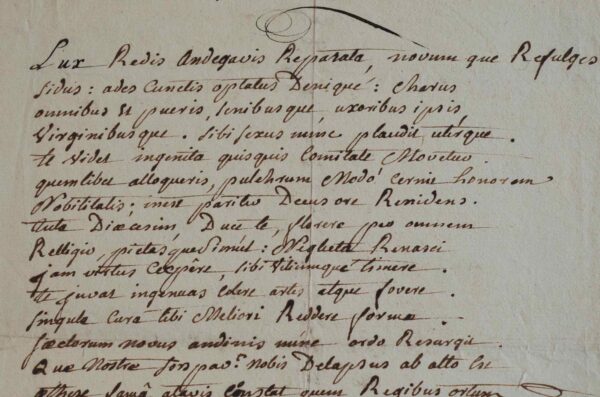 Lux Redis Andegavis Reparata, novum que Refulges
Sidus : ades Cunctis optatus Denique : Charus
omnibus Et pueris, senibusque, uxoribus ipsis,
Virginibusque. Sibi sexus nunc plaudit uterque.
te Videt ingenita quisquis Comitate Movetur
quemlibet alloqueris, pulchrum Modo cernit honorem
Nobilitatis ; inest pariter Decus ore Renidens.
tuta Diœcesim, Duce te, florere per omnem
Relligio, pietasque Simul : Neglecta Renasci
jam virtus Cœpêre, sibi Vitiumque timere.
te juvat ingenuas edere artes atque fovere.
singula Cura tibi Meliori Reddere forma.
sæclorum novus andinis nunc ordo Resurgit.
Quæ Nostræ nobis Delapsus ab alto Est
æthere famâ atavis Constat quem Regibus ortum